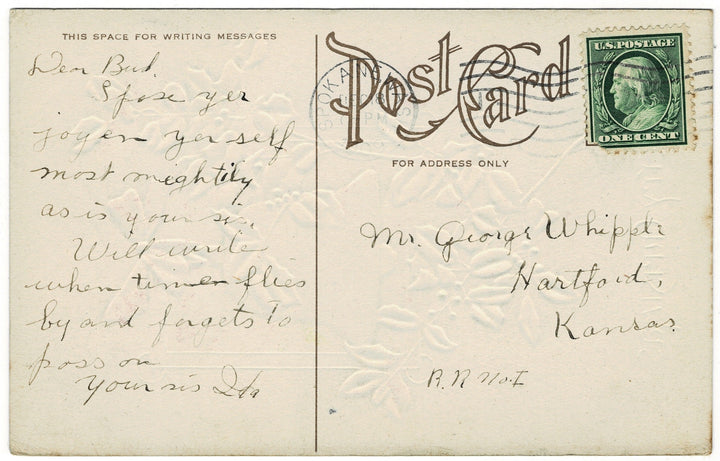 THIS SPACE FOR WRITING MESSAGES
Post Card
FOR ADDRESS ONLY
U.S. POSTAGE
ONE CENT
SPOKANE
PM
Dear Bud.
Spose yer
joyen yer self
most mightily
as is your sis.
Will write
when timer flies
by and forgets to
pass on
Your sis
Mr. George Whipple
Hartford,
Kansas.
R.R No. I